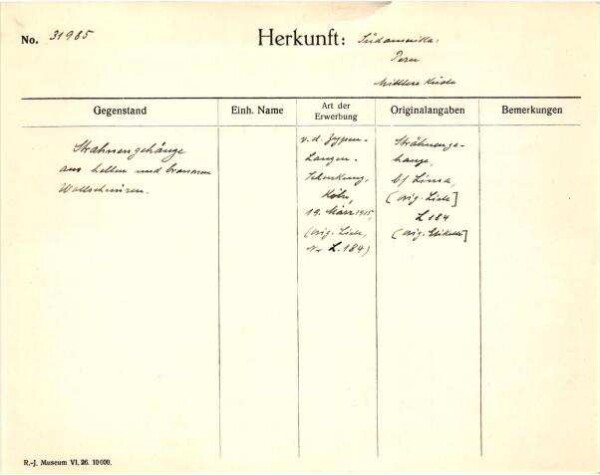 No. 31985
Herkunft: Südamerika.
Peru
Mittlere Küste
Gegenstand
Einh. Name
Art der
Erwerbung
Originalangaben
Bemerkungen
Strähnengehänge
aus hellen und braunen
Wollschnüren.
v. d. Zypen-
Langen-
Schenkung,
Köln,
19. März 1915,
(orig. Liste,
No L. 184)
Strähnenge-
hänge,
b/ Lima,
(orig. Liste]
L 184
(orig. Etikette]
R.-J. Museum VI. 26. 10000.